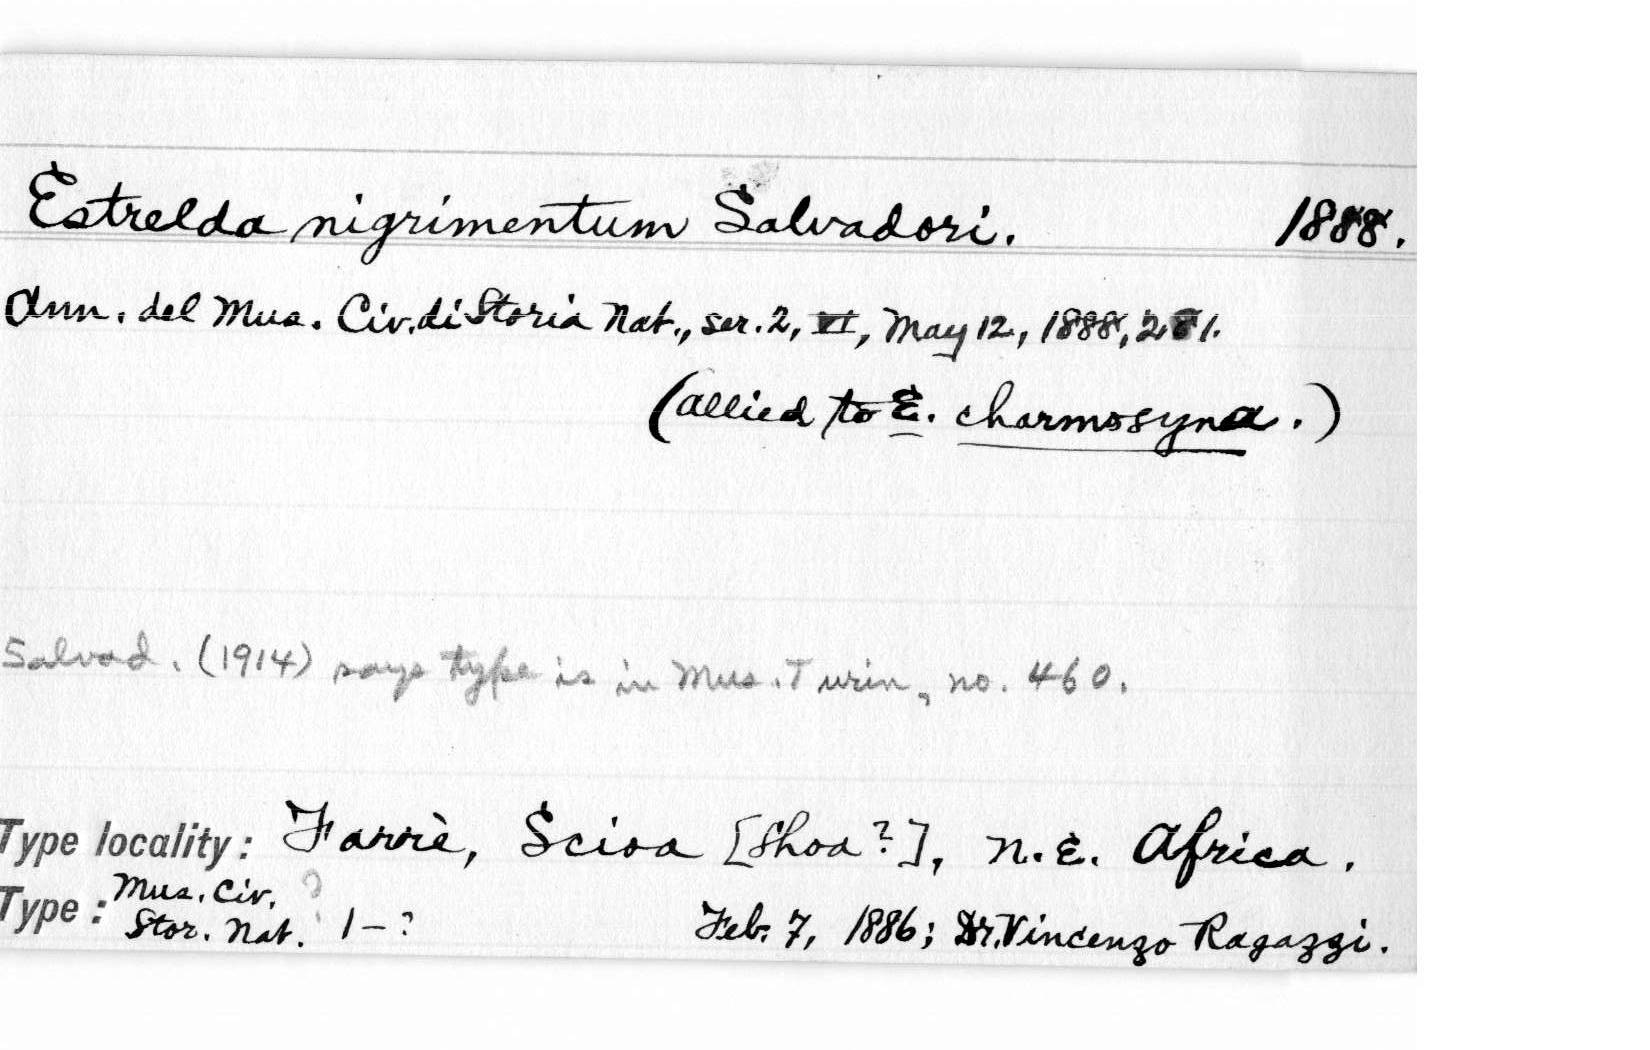 Estrelda nigrimentum Salvadori. 1888.
Ann. del Mus. Civ. di Storia Nat., ser. 2, VI, May 12, 1888, 281.
(allied to E. charmosyna.)
Salvad. (1914) says type is in Mus. Turin, no. 460.
Type locality: Farrè, Scioa [Shoa?], N.E. Africa.
Type: Mus. Civ. ?
Stor. Nat. 1-? Feb. 7, 1886; Dr. Vincenzo Ragazzi.